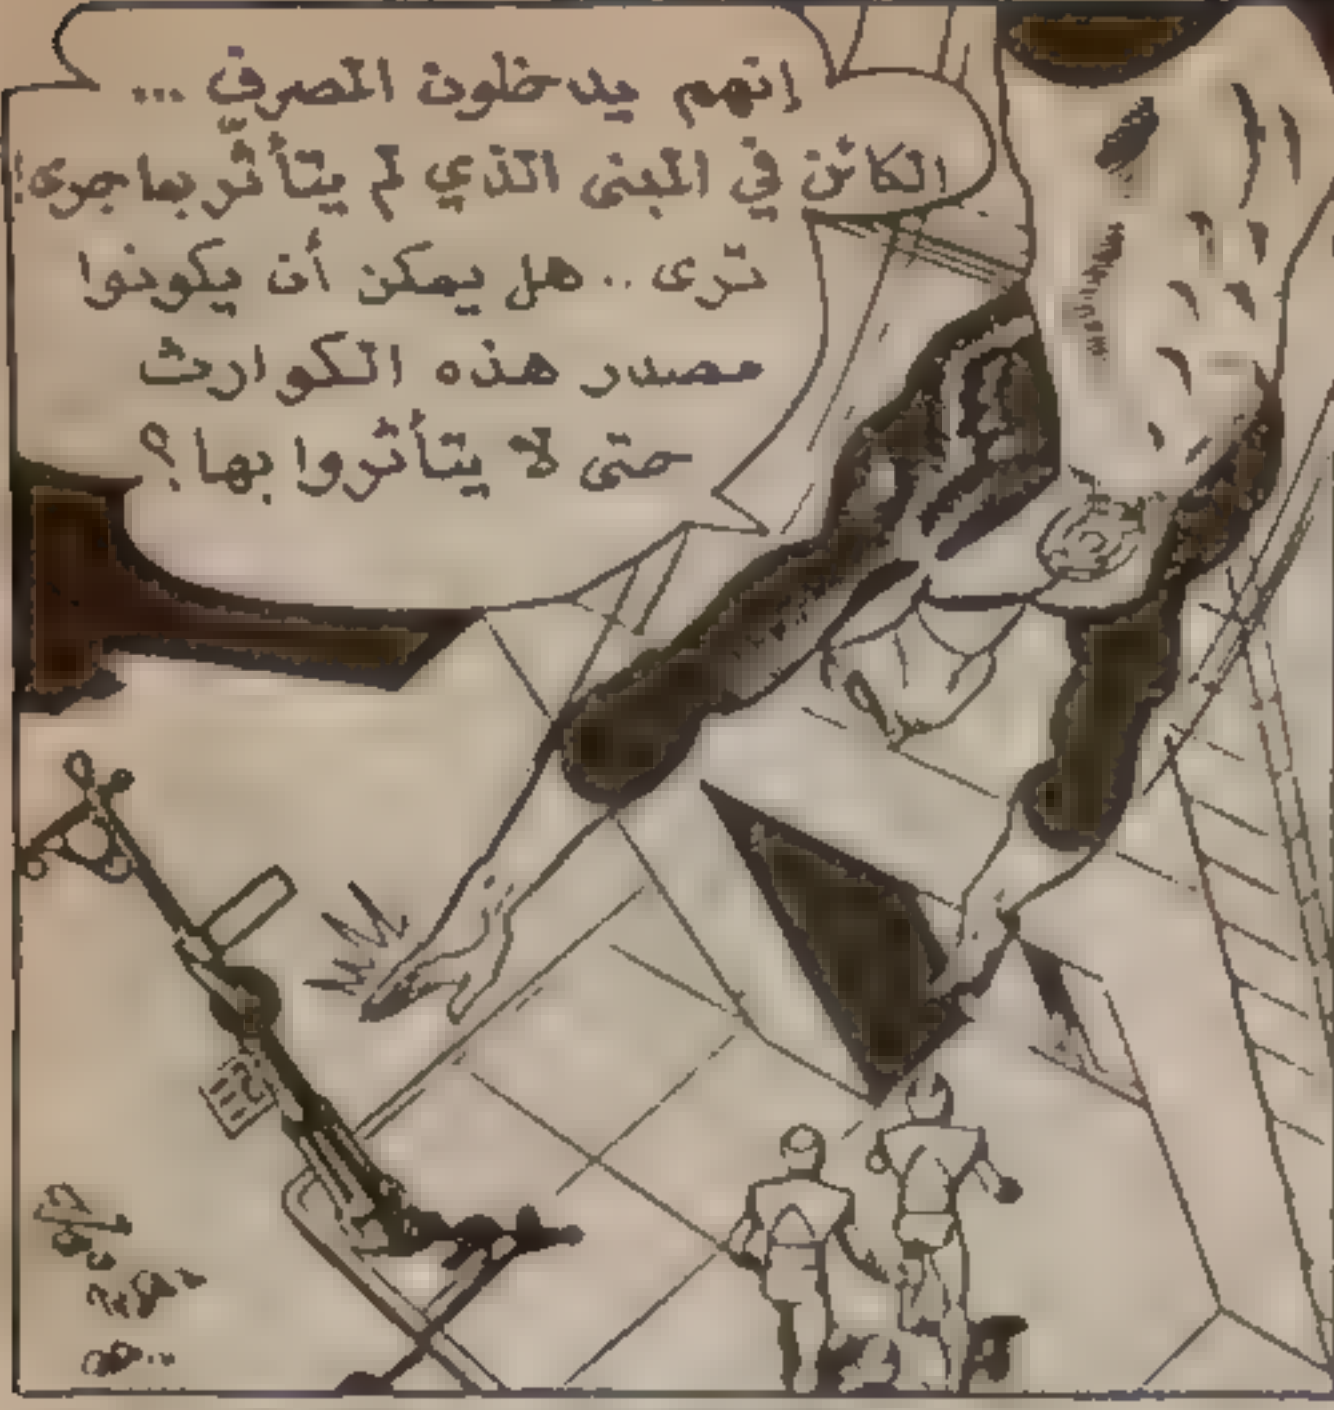 إنهم يدخلون المصرف ...
الكائن في المبنى الذي لم يتأثّر بما جرى!
تُرى .. هل يمكن أن يكونوا
مصدر هذه الكوارث
حتى لا يتأثروا بها؟